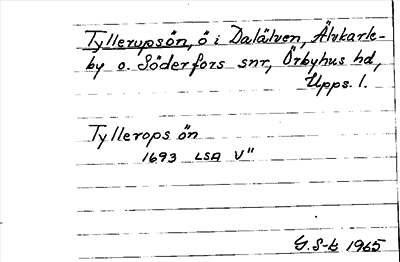 Tyllerupsön, ö i Dalälven, Älvkarle-
by o. Söderfors snr, Örbyhus hd,
Upps. l.
Tyllerops ön
1693 LSA V"
G. S-k 1965